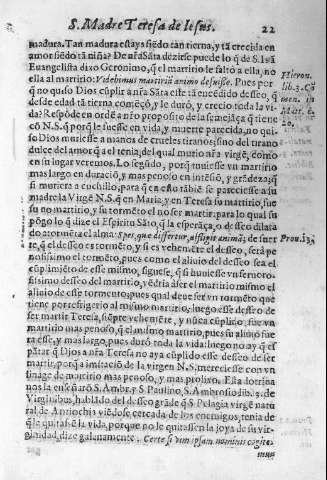 S. Madre Teresa de Iesus. 22
madura. Tan madura estaya siẽdo tan tierna, y tã crecida en
amor siẽdo tã niña? De nr̃a Sãta dezirse puede lo q̃ de S. Iuã
Euangelista dixo Geronimo, q̃ el martirio le faltò a ella, no
ella al martirio: Videbimus martirio animo defuisse. Pues por
q̃ no quiso Dios cuplir a nr̃a Sãta este tã encẽdido desseo, q̃
desde edad tã tierna comẽçò, y le durò, y crecio toda la vi-
da? Respõde en ordẽ a nr̃o proposito de la semejãça q̃ tiene
cõ N.S. q̃ porq̃ le fuesse en vida, y muerte parecida, no qui-
so Dios muriesse a manos de crueles tiranos, sino del tirano
dulce del amor q̃ a el tenia, del qual murio nr̃a virgẽ, como
en su lugar veremos. Lo segũdo, porq̃ tuuiesse vn martirio
mas largo en duraciõ, y mas penoso en intẽsiõ, y grãdeza; q̃
si muriera a cuchillo, para q̃ en esto tãbiẽ se pareciesse a su
madre la Virgẽ N.S. q̃ en Maria, y en Teresa su martirio, fue
su no martirio, y su tormẽto el no ser martir: para lo qual su
põgo lo q̃ dize el Espiritu Sãto, q̃ la esperãça, o desseo dilata
do atormẽta el alma: Spes, que differtur, affligit animã; de suer
te, q̃ el desseo es tormẽto, y si es vehemẽte el desseo, serà pe
nosissimo el tormẽto, pues como el aliuio del desseo sea el
cuplimiẽto de esse mismo, siguese, q̃ si huuiesse vn feruoro-
sissimo desseo del martirio, vẽdria à ser el martirio mismo el
aliuio de esse tormento; pues qual deue ser vn tormẽto que
tiene por refrigerio al mismo martirio; luego esse desseo de
ser martir Teresa, siẽpre vehemẽte, y nũca cuplido, fue vn
martirio mas penoso, q̃ el mismo martirio, pues su aliuio fue
ra esse, y mas largo, pues durò toda la vida: luego no ay q̃ es
pãtar q̃ Dios a nr̃a Teresa no aya cuplido esse desseo de ser
martir, porq̃ a imitaciõ de la virgen N.S. mereciesse con vn
linage de martirio mas penoso, y mas prolixo. Esta dotrina
nos la enseñarõ S. Ambr. y S. Paulino, S. Ambrosio lib. 3. de
Virginibus, hablãdo del desseo grãde q̃ S. Pelagia virgẽ natu
ral de Antiochia viẽdose cercada de los enemigos, tenia de
q̃ le quitassẽ la vida, porque no le quitassen la joya de su vir-
ginidad, dize galanamente. Certe si vim ipsam nominis cogite-
mus
Hieron.
lib. 3. Cõ
men. in
Mat. c.
20.
Prou. 13.